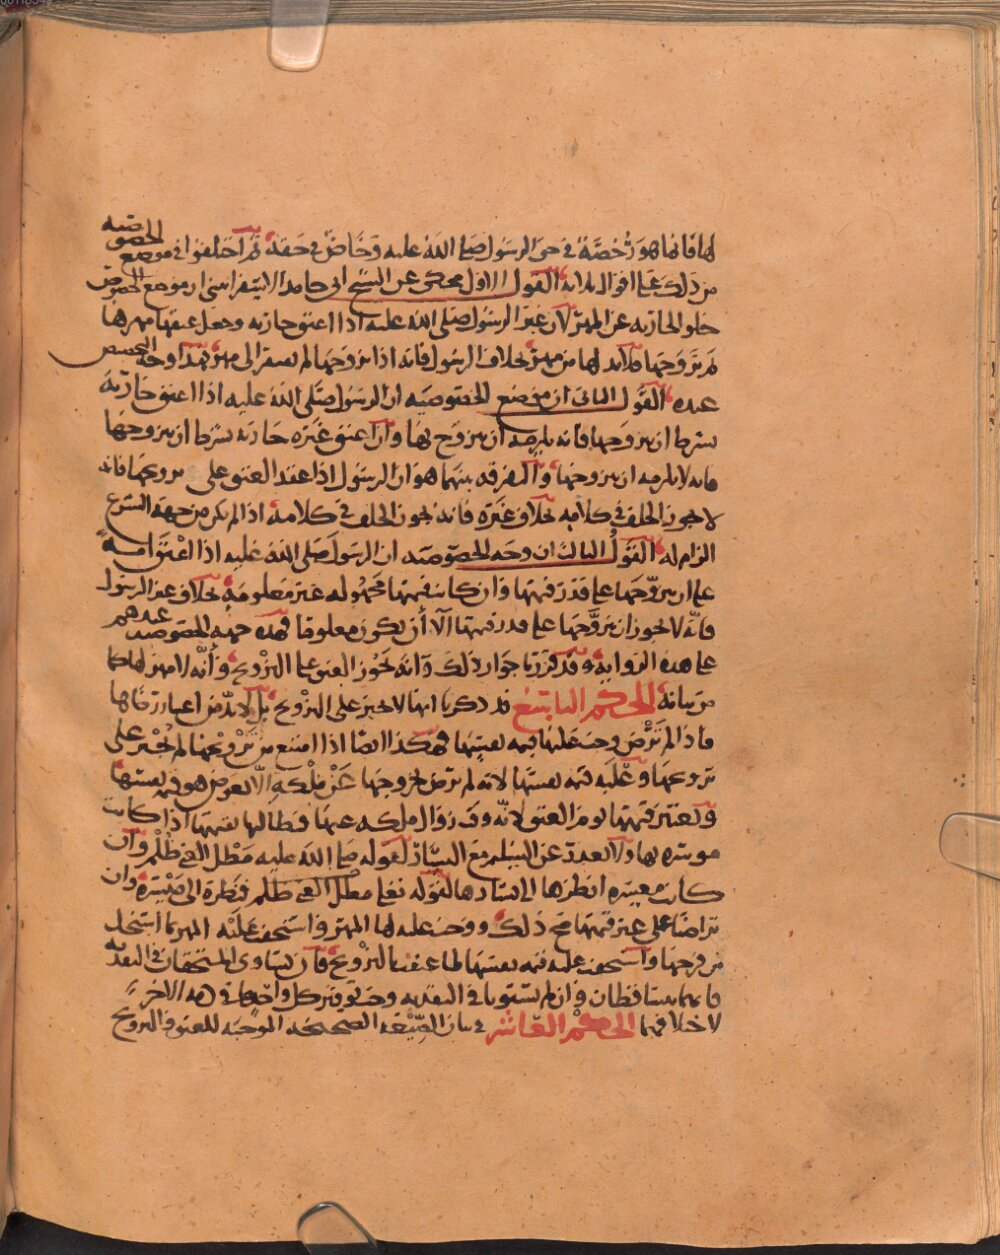 لها فانما هو رخصة في حق الرسول صلى الله عليه وخاص في حقه ثم اختلفوا في موضع الخصوصيه
من ذلك على اقوال ثلاثه القول الاول محكي عن الشيخ ابي حامد الاسفرايني ان موضع الخصوص
خلو الجاريه عن المهر لان غير الرسول صلى الله عليه اذا اعتق جاريه وجعل عتقها مهرها
لم تزوجها فلابد لها من مهر بخلاف الرسول فانه اذا تزوجها لم يفتقر الى مهر فهذا وجه التخصيص
عنده القول الثاني ان موضع الخصوصيه ان الرسول صلى الله عليه اذا اعتق جاريه
بشرط ان يتزوجها فانه يلزمه ان يتزوج بها وان اعتق غيره جاريه بشرط ان يتزوجها
فانه لا يلزمه ان يتزوجها والتفرقه بينهما هو ان الرسول اذا عقد العتق على تزويجها فانه
لا يجوز الخلف في كلامه بخلاف غيره فانه يجوز الخلف في كلامه اذا لم يكن من جهة الشرع
الزام له القول الثالث ان وجه الخصوصيه ان الرسول صلى الله عليه اذا اعتق امته
على ان يتزوجها على قدر قيمتها وان كانت قيمتها مجهوله غير معلومة بخلاف غير الرسول
فانه لا يجوز ان يتزوجها على قدر قيمتها الا أن يكون معلوما فهذه جهة الخصوصيه عندهم
على هذه الروايه وقد قررنا جواز ذلك وانه يجوز العتق على التزويج وأنه لا مهر لها كما
مر بيانه الحكم التاسع قد ذكرنا انها لا تجبر على التزويج بل لابد من اعتبار رضاها
فاذا لم ترض وجب عليها قيمه نفسها وهكذا ايضا اذا امتنع من تزويجها لم يجبر على
تزويجها وعليه قيمه نفسها لانه لم يرض لخروجها عن ملكه الا لعوض هو قيمه نفسها
وتعتبر قيمتها يوم العتق لانه وقت زوال ملكه عنها فتطالبها بقيمتها اذا كانت
موسره بها ولا تعدد عن التسليم مع اليسار لقوله صلى الله عليه مطل الغني ظلم وان
كانت معسره انظرها الى يسارها لقوله تعالى مطل الغني ظلم فنظرة الى ميسرة وان
تراضيا على غير قيمتها صح ذلك ووجب عليه لها المهر واستحقت عليه المهر بما استحل
من فرجها واستحق عليها قيمه نفسها لما عتقت بالتزويج فان تساوى المستحقان في النقديه
فانهما يتساقطان وان لم يستويا في النقديه وجب توفير كل واحد ما في ذمة الاخر
لا خلاف فيها الحكم العاشر في بيان الصيغه الصحيحه الموجبه للعتق في التزويج